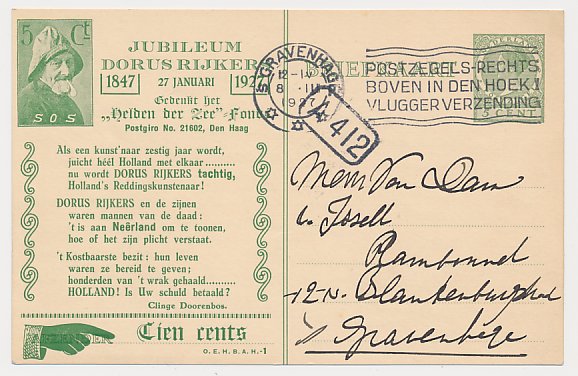 5 Ct
S O S
JUBILEUM
DORUS RIJKERS
1847 27 JANUARI 1927
Gedenkt het
„Helden der Zee"-Fonds
Postgiro No. 21602, Den Haag
Als een kunst'naar zestig jaar wordt,
juicht héél Holland met elkaar ..........
nu wordt DORUS RIJKERS tachtig,
Holland's Reddingskunstenaar!
DORUS RIJKERS en de zijnen
waren mannen van de daad:
't is aan Neêrland om te toonen,
hoe of het zijn plicht verstaat.
't Kostbaarste bezit: hun leven
waren ze bereid te geven;
honderden van 't wrak gehaald........
HOLLAND! Is Uw schuld betaald?
Clinge Doorenbos.
AFZENDER
Tien cents
O. E. H. B. A. H.-1
BRIEFKAART
'S GRAVENHAGE
POSTZEGELS-RECHTS
BOVEN IN DEN HOEK!
VLUGGER VERZENDING
5 CENT
412
Mevr Van Dam
Gravenhage